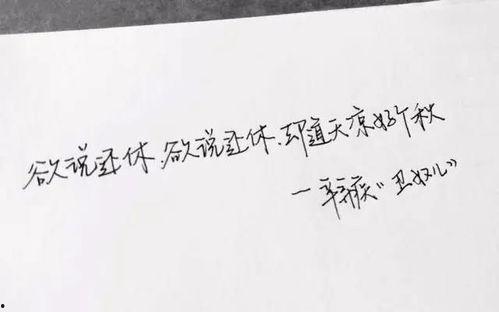 欲说还休,欲说还休,却道天凉好个秋
一辛弃疾“丑奴儿”